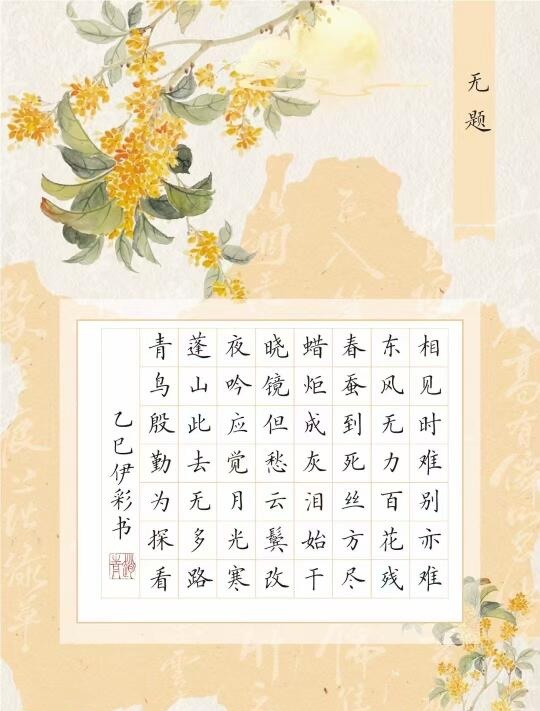 无题
相见时难别亦难
东风无力百花残
春蚕到死丝方尽
蜡炬成灰泪始干
晓镜但愁云鬓改
夜吟应觉月光寒
蓬山此去无多路
青鸟殷勤为探看
乙巳伊彩书